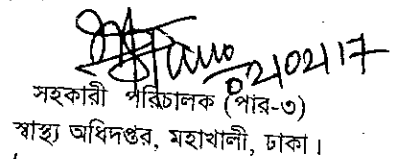 02/02/17
সহকারী পরিচালক (পার-৩)
স্বাস্থ্য অধিদপ্তর, মহাখালী, ঢাকা।